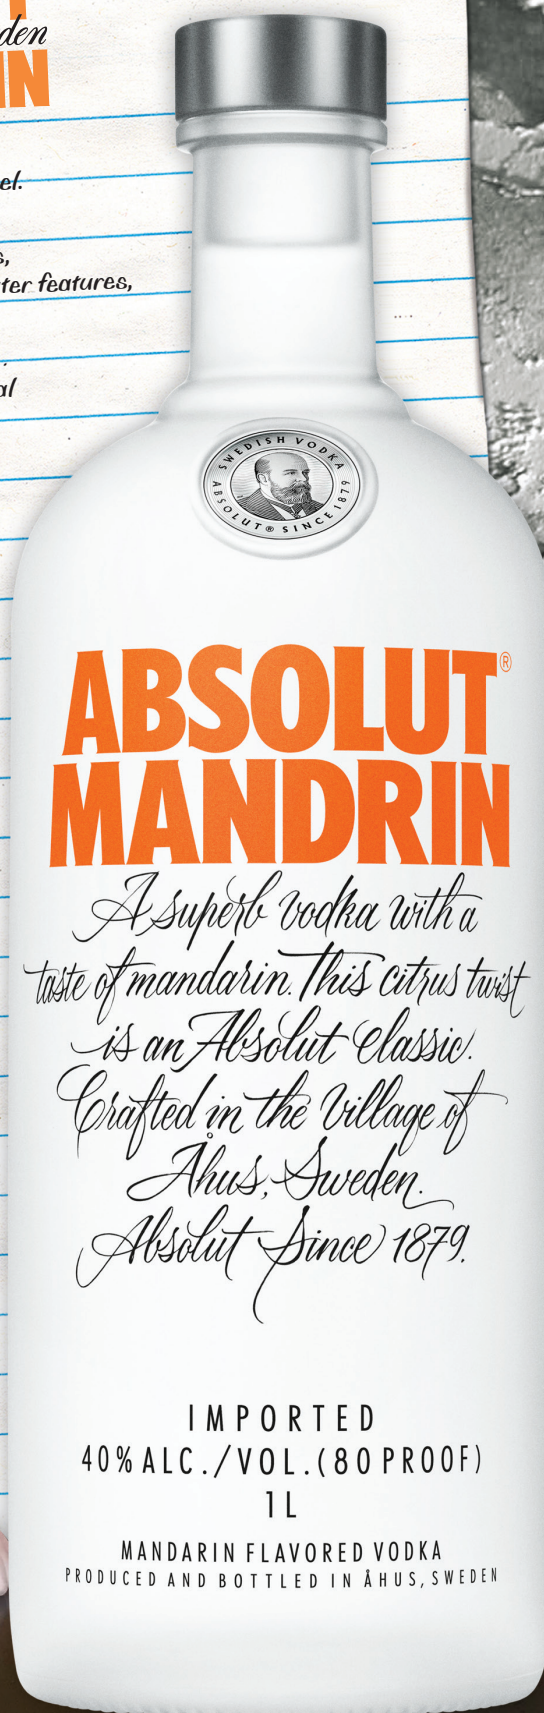 den
IN
el.
s,
ter features,
al
SWEDISH VODKA
ABSOLUT® SINCE 1879
ABSOLUT®
MANDRIN
A superb vodka with a
taste of mandarin. This citrus twist
is an Absolut Classic.
Crafted in the Village of
Åhus, Sweden.
Absolut Since 1879.
IMPORTED
40% ALC./VOL. (80 PROOF)
1 L
MANDARIN FLAVORED VODKA
PRODUCED AND BOTTLED IN ÅHUS, SWEDEN